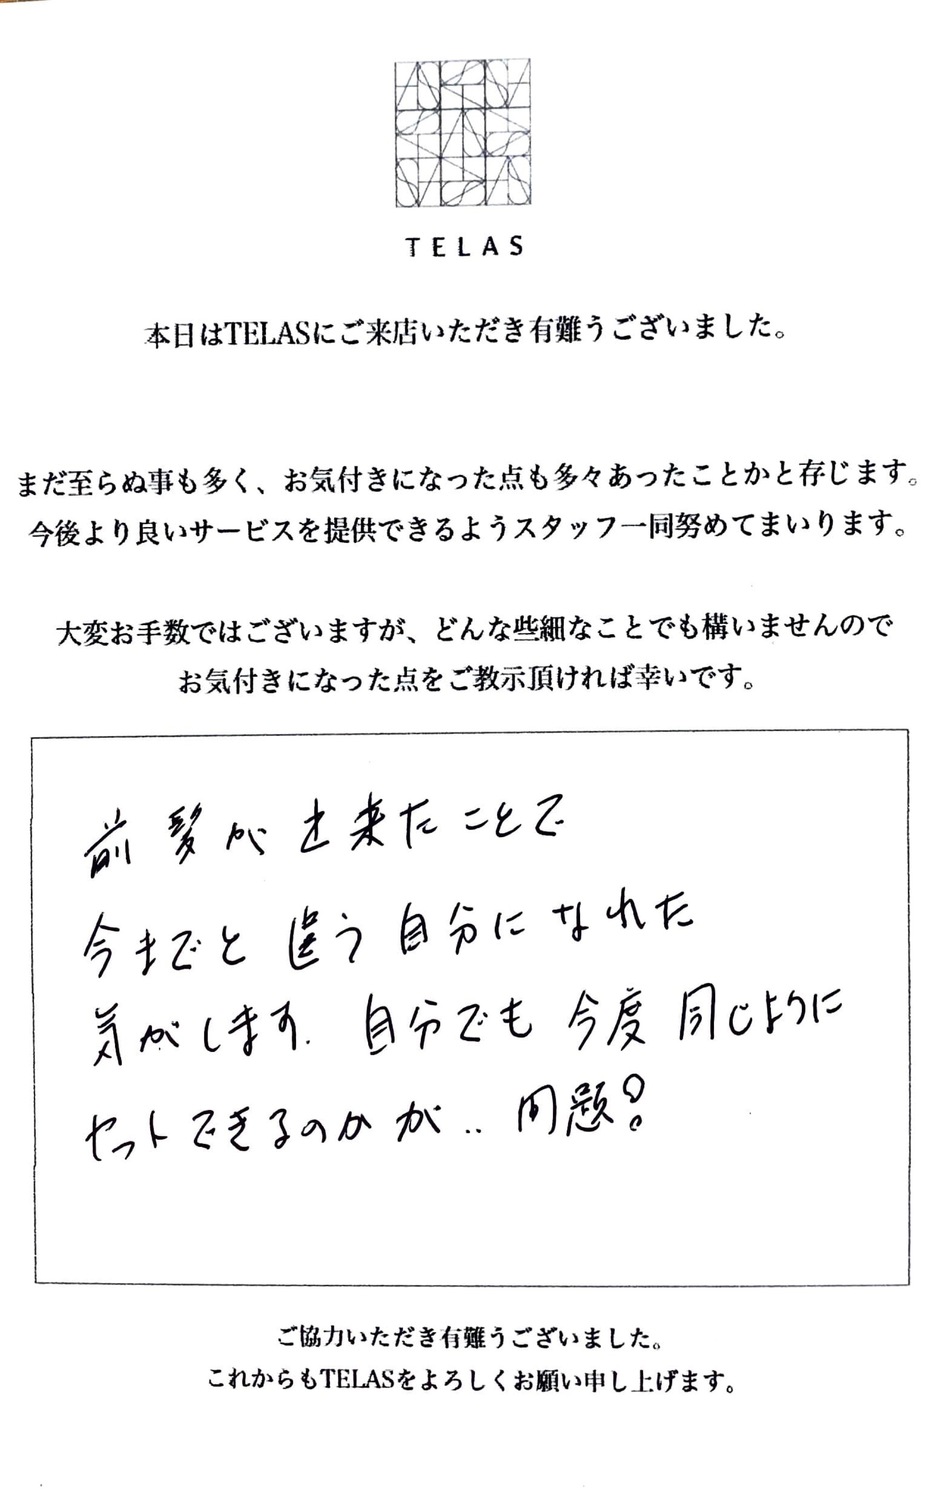 TELAS
本日はTELASにご来店いただき有難うございました。
まだ至らぬ事も多く、お気付きになった点も多々あったことかと存じます。
今後より良いサービスを提供できるようスタッフ一同努めてまいります。
大変お手数ではございますが、どんな些細なことでも構いませんので
お気付きになった点をご教示頂ければ幸いです。
前髪が出来たことで
今までと違う自分になれた
気がします. 自分でも今度同じように
セットできるのかが.. 問題?
ご協力いただき有難うございました。
これからもTELASをよろしくお願い申し上げます。